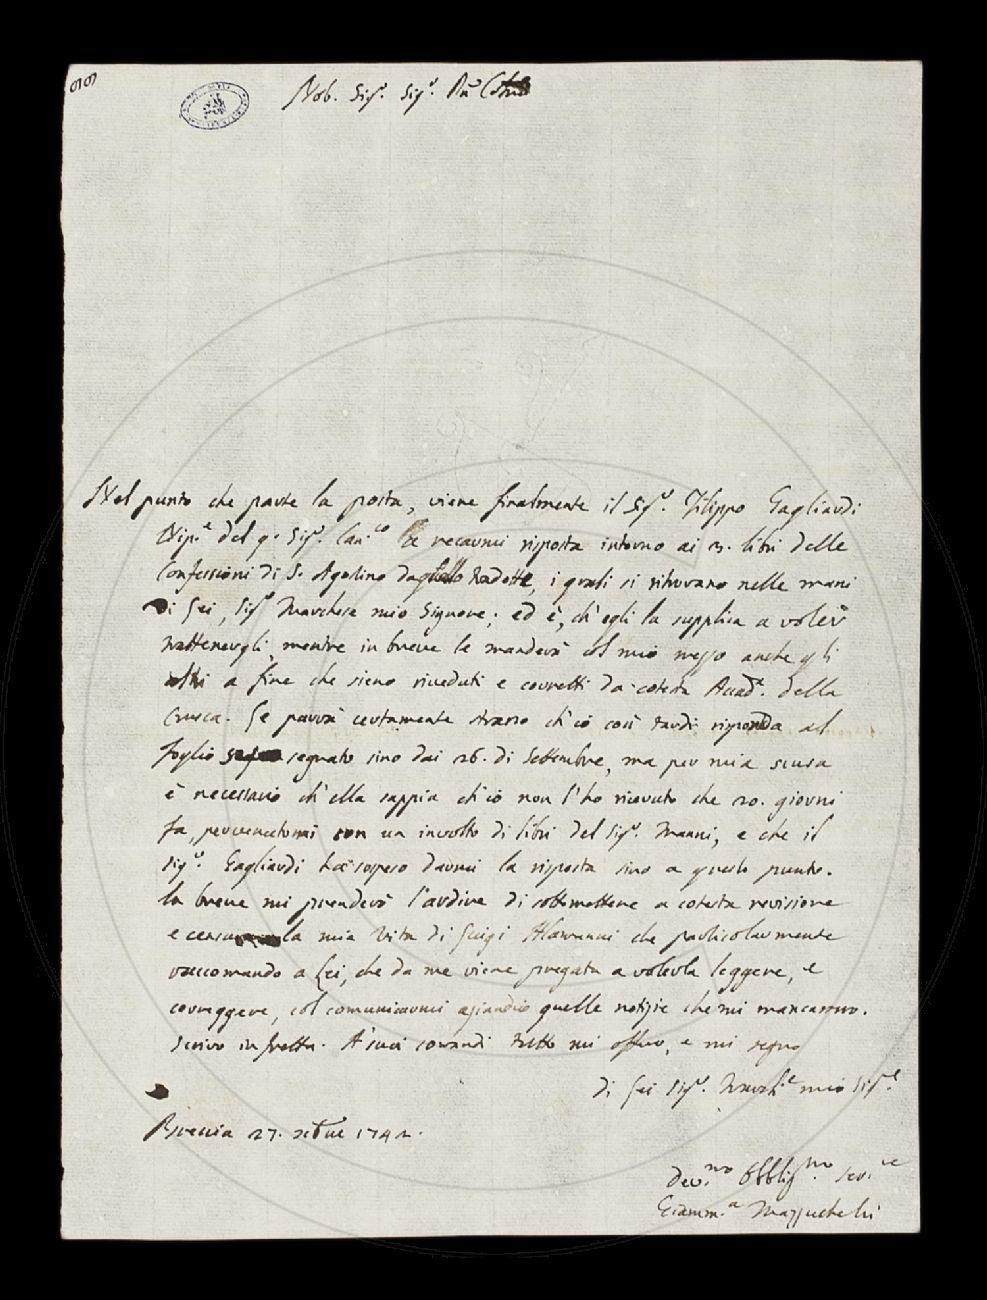 Nob. Sig.r Sig.r
Nel punto che parte la posta, viene finalmente il Sig.r Filippo Gagliardi
Nip.e del q. Sig.r Can.co a recarmi risposta intorno ai 3. libri delle
Confessioni di S. Agostino tradotte, i quali si ritrovano nelle mani
di Lei, Sig.r Marchese mio Signore; ed è, ch'egli la supplica a voler
trattenergli, mentre in breve le manderà col mio mezzo anche gli
altri a fine che sieno riveduti e corretti da cotesta Accad.a della
Crusca. Le parrà certamente strano ch'io così tardi risponda al
foglio segnato sino dai 26. di Settembre, ma per mia scusa
è necessario ch'ella sappia ch'io non l'ho ricevuto che 20. giorni
fa, pervenutomi con un involto di libri del Sig.r Manni, e che il
Sig.r Gagliardi ha sospeso darmi la risposta sino a questo punto.
In breve mi prenderò l'ardire di sottomettere a cotesta revisione
e censura la mia Vita di Luigi Alamanni che particolarmente
raccomando a Lei, che da me viene pregata a volerla leggere, e
correggere, col comunicarmi aziandio quelle notizie che mi mancassero.
Scrivo in fretta. A' suoi comandi tutto mi offro, e mi segno
di Lei Sig.r March.e mio Sig.e
Brescia 27. 1742.
Dev.mo Obblig.mo Ser.re
Giamm.a Mazzuchelli